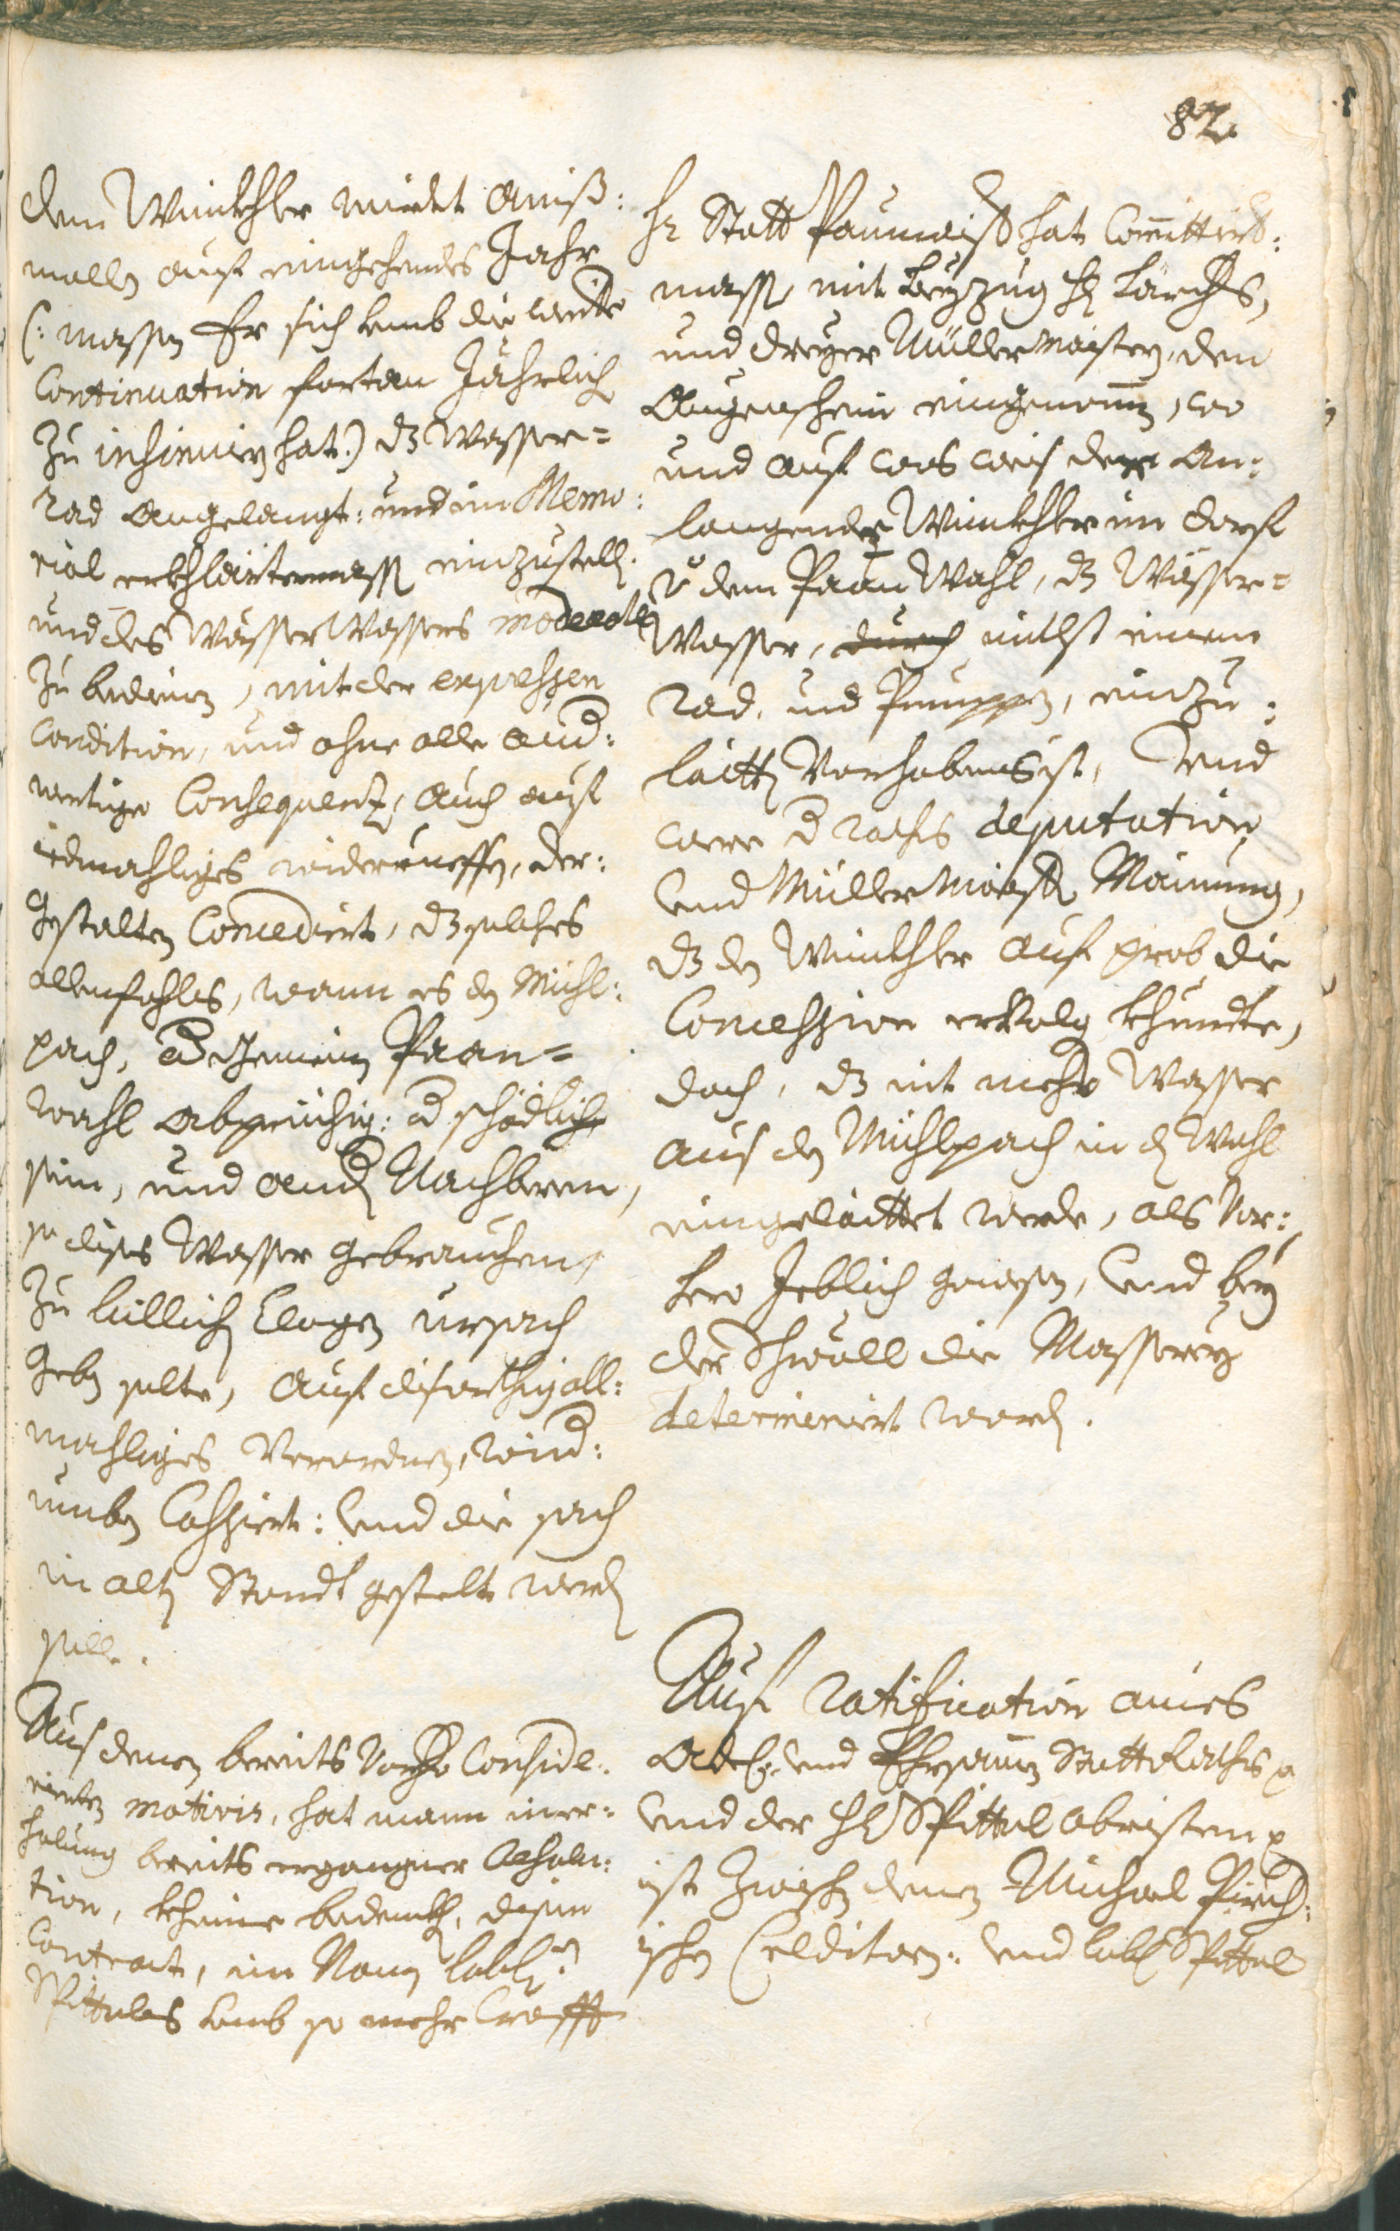 82.
dem Winkhler wirdet aniß:
mallen auf eingehendes Jahr
(: massen Er sich umb die weitte
Continuation fortan Jährlich
Zu insinuirn hat.) dz Wasser=
Rad angelangt: und im Memo:
rial erkhlärtermassen einzustelln.
und des Wässer Wassers moderate
Zu bedienen, mit der expressen
Condition, und ohne alle and:
wertige Consequenz, auch auf
iedmahliges widerrueffen, der:
gestalten Concedirt, dz solches
allenfahls, wann es den Mühl:
pach, od gemeinen Paan=
wahl abprüchig: od schödlich
sein, und andern Nachbern,
so dises Wasser gebrauchen,
Zu billichen Clagen ursach
geben solte, auf diserthigall:
mahliges Verordnen, wid:
umben Cassiert: und die sach
in alten Standt gestelt werden
solle.
Aus denen bereits Vorhero Conside:
rierten motivis, hat mann in er:
holung bereits ergangner Resolu:
tion, kheine bedenkhen, disem
Contract, im Namen lobln:
Spittales umb so mehr Crafft
Hr Statt Paumaister hat Committirter:
massen, mit Beyzug Hr Larchers,
und dreyer Müller Maistern, den
Augenschein eingenommen, wo
und auf was weis der An:
langender Winkhler im dorf
v dem Paan Wahl, dz Wässer=
Wasser, durch mitlst einem
Rad, und Pumppen, einzu:
laitten Vorhabens ist, Und
were d Raths deputation,
und Müller Maister Mainung,
dz den Winkhler auf prob die
Concession ervolgen khundte,
doch, dz nit mehr Wasser
aus den Mühlpach in den Wahl
eingelaittet werde, als Vor:
hero Jeblich gewesen, und bey
der Schwöll die Masserey
determinirt worden.
Auf Ratification aines
Adel: und Ehrsamen Statt Raths p
und der Hl Spittal obristen p
ist zwischen denen Michael Pirch:
ischen Creditorn: und lobl Spittal